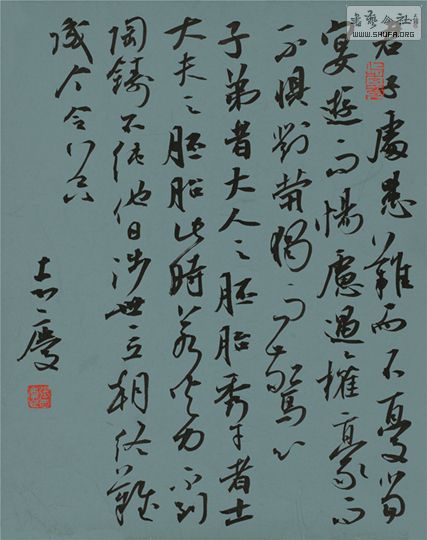 君子處患難而不憂當
宴遊而惕慮遇權豪而
不懼對煢獨而驚心
子弟者大人之胚胎秀才者士
大夫之胚胎此時若火力不到
陶鑄不純他日涉世立朝終難
成个令器
志慶
書藝公社